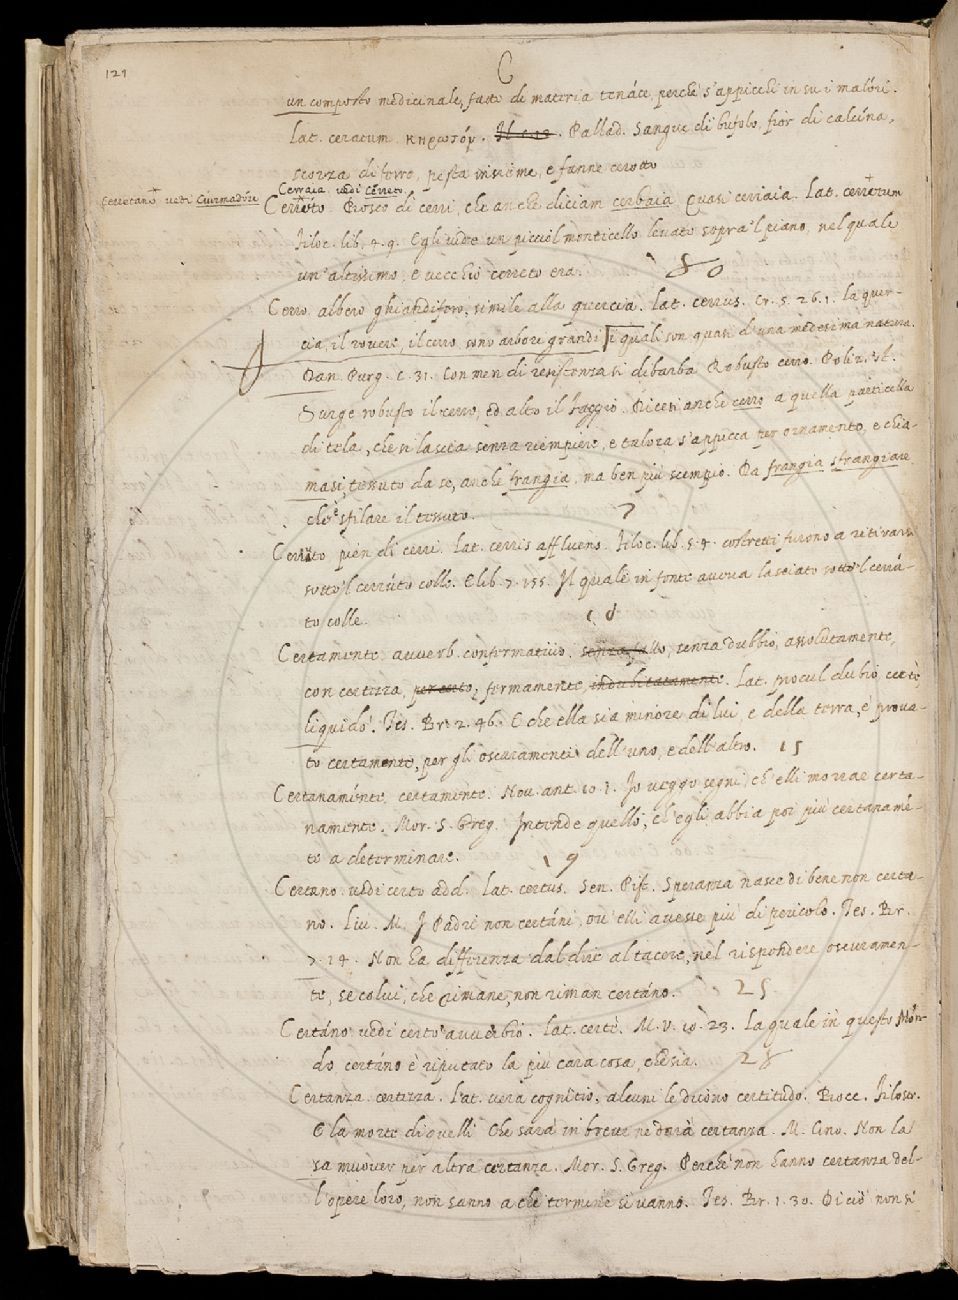 121
C
un composto medicinale, fatto di materia tenáce, perche s'appicchi in su i malóri.
Lat. ceratum. κηρωτόν. Pallad. Sangue di bufolo, fior di calcína,
scorza di ferro, pesta insieme, e fanne cerotto
Cerraia vedi Cerreto.
Cerretano vedi Ciurmadóre
Cerréto. Bosco di cerri, che anche diciam cerbaia quasi cerraia. Lat. cerretum
Filoc. lib. 4. 9. Egli vide un picciol monticello levato sopra'l piano, nel quale
un'altissimo, e vecchio cerreto era.
Cerro albero ghiandifero, simile alla quercia. Lat. cerrus. Cr. 5. 26. 1. La quer-
cia, il rovere, il cerro, sono arbori grandi i quali son quasi d'una medesima natura.
Dan. Purg. C. 31. Con men di resistenza si dibarba Robusto cerro. Poliz. st.
Surge robusto il cerro, ed alto il faggio. Dicesi anche cerro a quella particella
di tela, che si lascia senza riempiere, e talora s'appicca per ornamento, e chia-
masi, tessuto da se, anche frangia, ma ben più scempio. Da frangia sfrangiare
ch'è sfilare il tessuto. 7
Cerruto pien di cerri. Lat. cerris affluens. Filoc. lib. 5. 4. costretti furono a ritirarsi
sotto'l cerrúto colle. E lib. 7. 155. Il quale in fonte aveva lasciato sotto'l cerrú-
to colle.
Certamente, avverb. confermativo, senza fallo, senza dubbio, assolutamente,
con certezza, per certo, fermamente, indubitatamente. Lat. procul dubio, certè,
liquidò. Tes. Br. 2. 46. E che ella sia minore di lui, e della terra, è prova-
to certamente, per gli oscuramenti dell'uno, e dell'altro. 15
Certanaménte, certamente. Nov. ant. 10. 1. Io veggo segni, ch'elli morrae certa-
namente. Mor. S. Greg. Intende quello, ch'egli abbia poi più certanamé-
te a determinare. 19
Certano. vedi certo add. Lat. certus. Sen. Pist. Speranza nasce di bene non certa-
no. Liv. M. I Padri non certáni, ov'elli avesse più di pericolo. Tes. Br.
7. 14. Non ha differenza dal dire al tacere, nel rispondere oscuramen-
te, se colui, che rimane, non riman certáno. 25
Certáno vedi certo avverbio. Lat. certè. M. V. 10. 23. La quale in questo Món-
do certáno è riputato la più cara cosa, che sia. 28
Certanza. certezza. Lat. vera cognitio, alcuni le dicono certitudo. Bocc. Filostr.
E la morte di quelli che sarà in breve ne darà certanza. M. Cino. Non la
sa muover per altra certanza. Mor. S. Greg. Perche non hanno certanza del-
l'opere loro, non sanno a che termine si vanno. Tes. Br. 1. 30. Di ciò non si